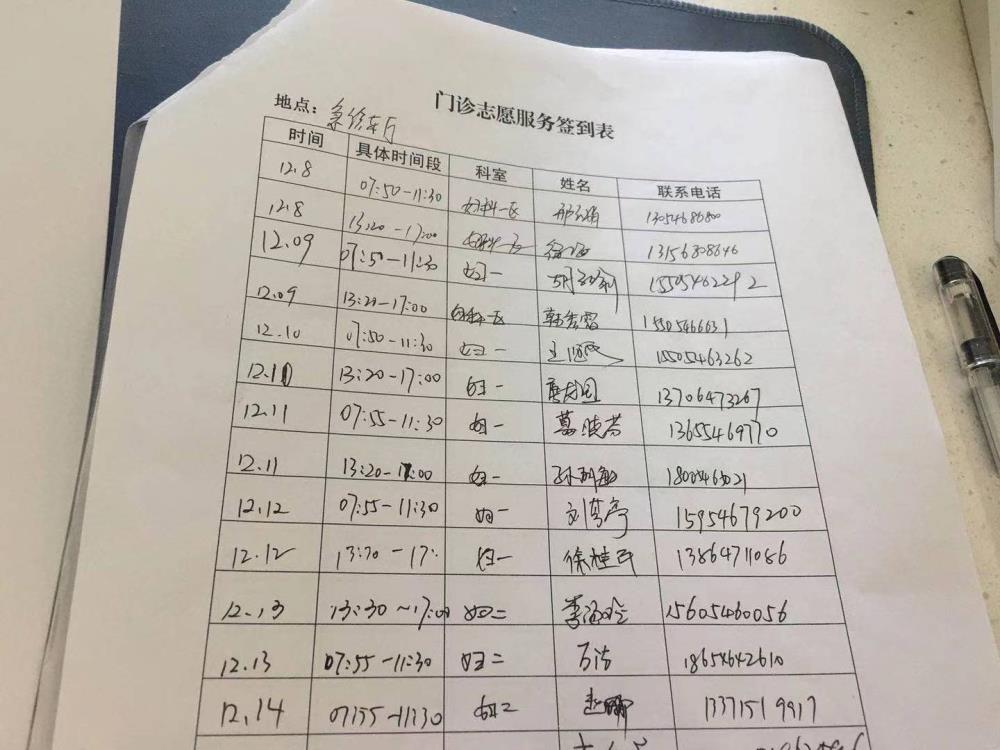 门诊志愿服务签到表
地点：急诊东厅
时间 具体时间段 科室 姓名 联系电话
12.8 07:50-11:30 妇科一区 13054686800
12.8 13:20-17:00 妇科一区 13156808646
12.09 07:50-11:30 妇一 15505462292
12.09 13:20-17:00 妇科一区 韩秀霞
12.10 07:50-11:30 妇一 15505463262
12.10 13:20-17:00 妇一 13706473267
12.11 07:55-11:30 妇一 葛晓芳 13655469770
12.11 13:20-17:00 妇一
12.12 07:55-11:30 妇一 15954679200
12.12 13:20-17: 妇一 徐桂民 13864711086
12.13 13:30~17:00 妇二 15605460056
12.13 07:55-11:30 妇二 万洁 18654642610
12.14 07:55-11:30 妇二 赵娜 13371519917